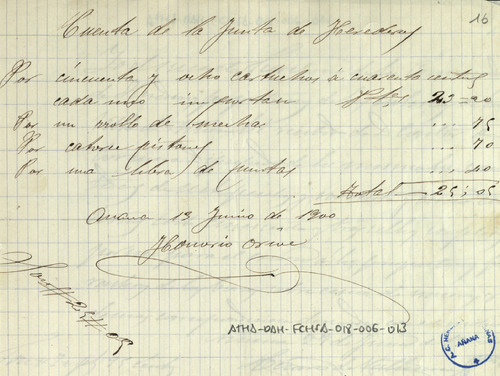 16
Cuenta de la Junta de Herederos
Por cincuenta y ocho cartuchos á cuarenta centms
cada uno importan Ptas 23-20
Por un rrollo de mecha ... 75
Por catorce pistones ... 70
Por una libra de puntas ... 40
Total 25:05
Anana 13 Junio de 1900
Honorio Orive
Son # 25 # 05
ATHA-DAH-FCHSA-018-006-013
AÑANA